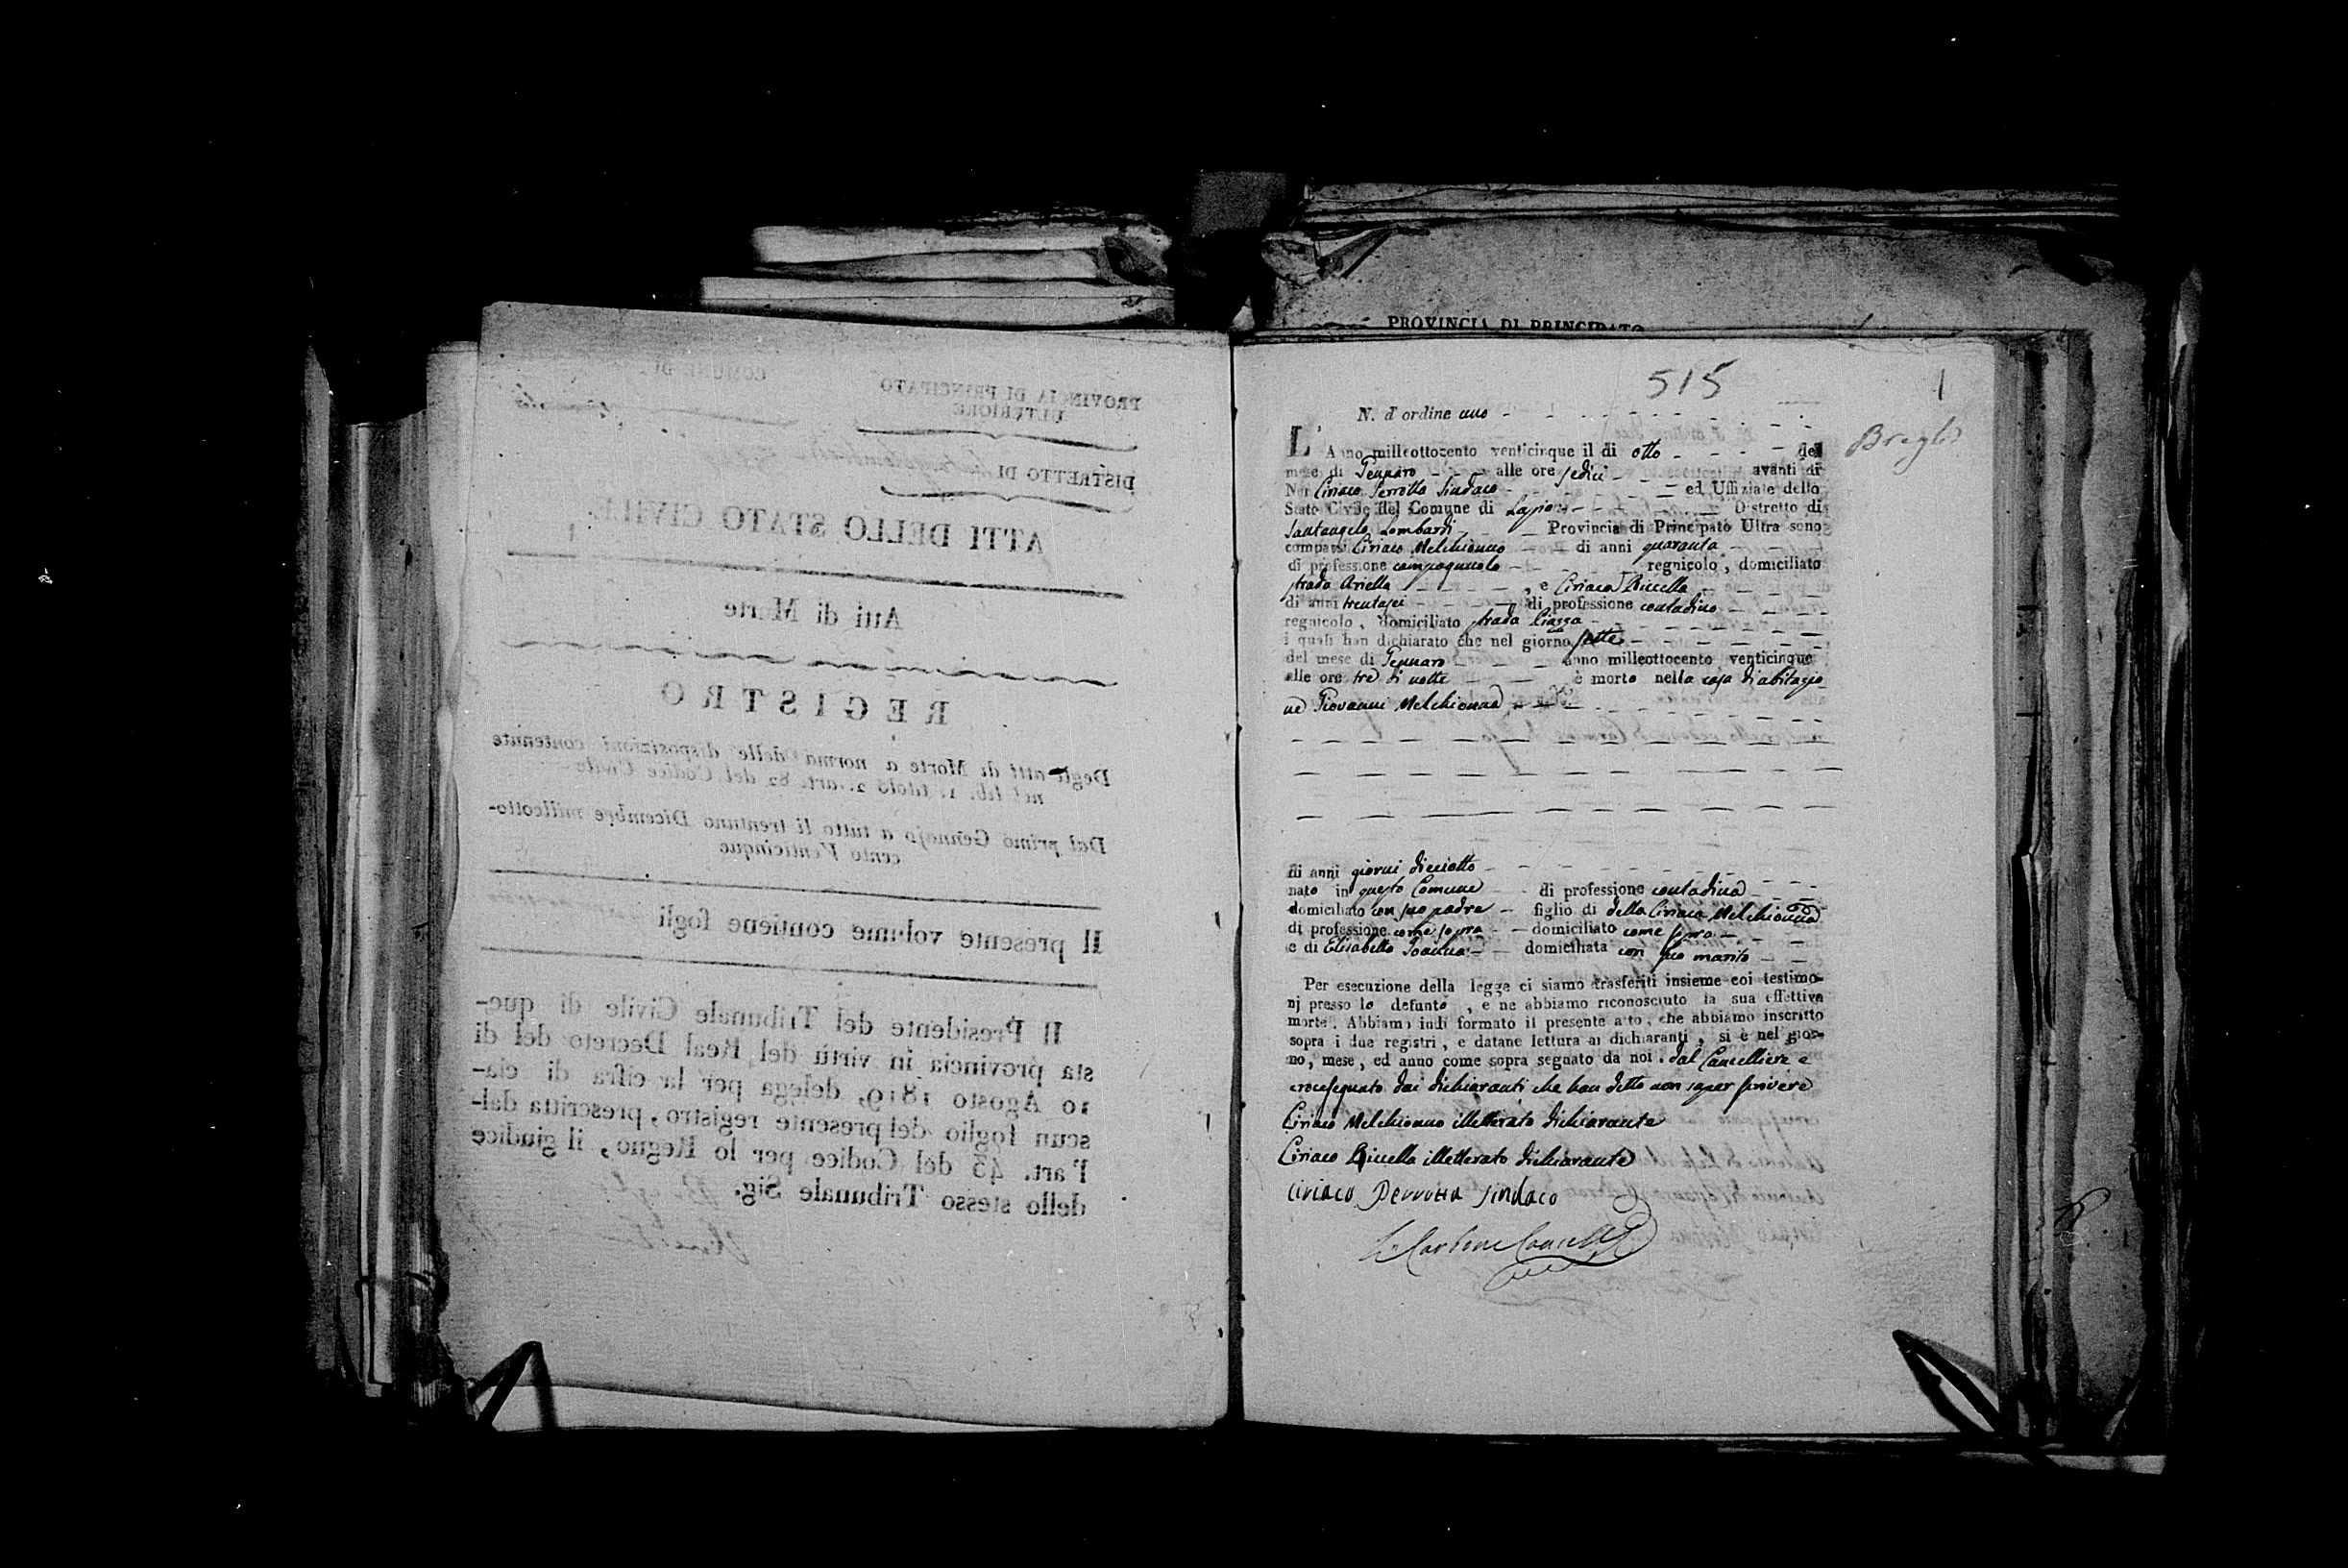 COMUNE DI
PROVINCIA DI PRINCIPATO
ULTERIORE
DISTRETTO DI
ATTI DELLO STATO CIVILE
Atti di Morte
REGISTRO
Degli atti di Morte a norma delle disposizioni contenute
nel lib. 1. titolo 2. art. 82 del Codice Civile
Dal primo Gennajo a tutto li trentuno Dicembre milleotto-
cento Venticinque
Il presente volume contiene fogli
Il Presidente del Tribunale Civile di que-
sta provincia in virtù del Real Decreto del di
10 Agosto 1819, delega per la cifra di cia-
scun foglio del presente registro, prescritta dal-
l'art. 43 del Codice per lo Regno, il giudice
dello stesso Tribunale Sig.
PROVINCIA DI PRINCIPATO
515
1
N. d'ordine uno
L'Anno milleottocento venticinque il di otto del
mese di Gennaro alle ore sedici avanti di
Noi Ciriaco Perrotta Sindaco ed Uffiziale dello
Stato Civile del Comune di Lapio Distretto di
Santangelo Lombardi Provincia di Principato Ultra sono
comparsi Ciriaco Melchionno di anni quaranta
di professione campagnuolo regnicolo, domiciliato
strada Ariella, e Ciriaco Riccella
di anni trentasei di professione contadino
regnicolo, domiciliato strada Piazza
i quali han dichiarato che nel giorno sette
del mese di Gennaro anno milleottocento venticinque
alle ore tre di notte è morto nella casa d'abitazio
ne Giovanni Melchionna
di anni giorni diciotto
nato in questo Comune di professione contadina
domiciliato con suo padre figlio di dello Ciriaco Melchionno
di professione come sopra domiciliato come sopra
e di Elisabetta domiciliata con suo marito
Per esecuzione della legge ci siamo trasferiti insieme coi testimo-
nj presso lo defunto, e ne abbiamo riconosciuto la sua effettiva
morte. Abbiamo indi formato il presente atto, che abbiamo inscritto
sopra i due registri, e datane lettura ai dichiaranti, si è nel gior-
no, mese, ed anno come sopra segnato da noi. dal Cancelliere e
crocesegnato dai dichiaranti che han detto non saper scrivere
Ciriaco Melchionno illetterato dichiarante
Ciriaco Riccella illetterato dichiarante
Ciriaco Perrotta Sindaco